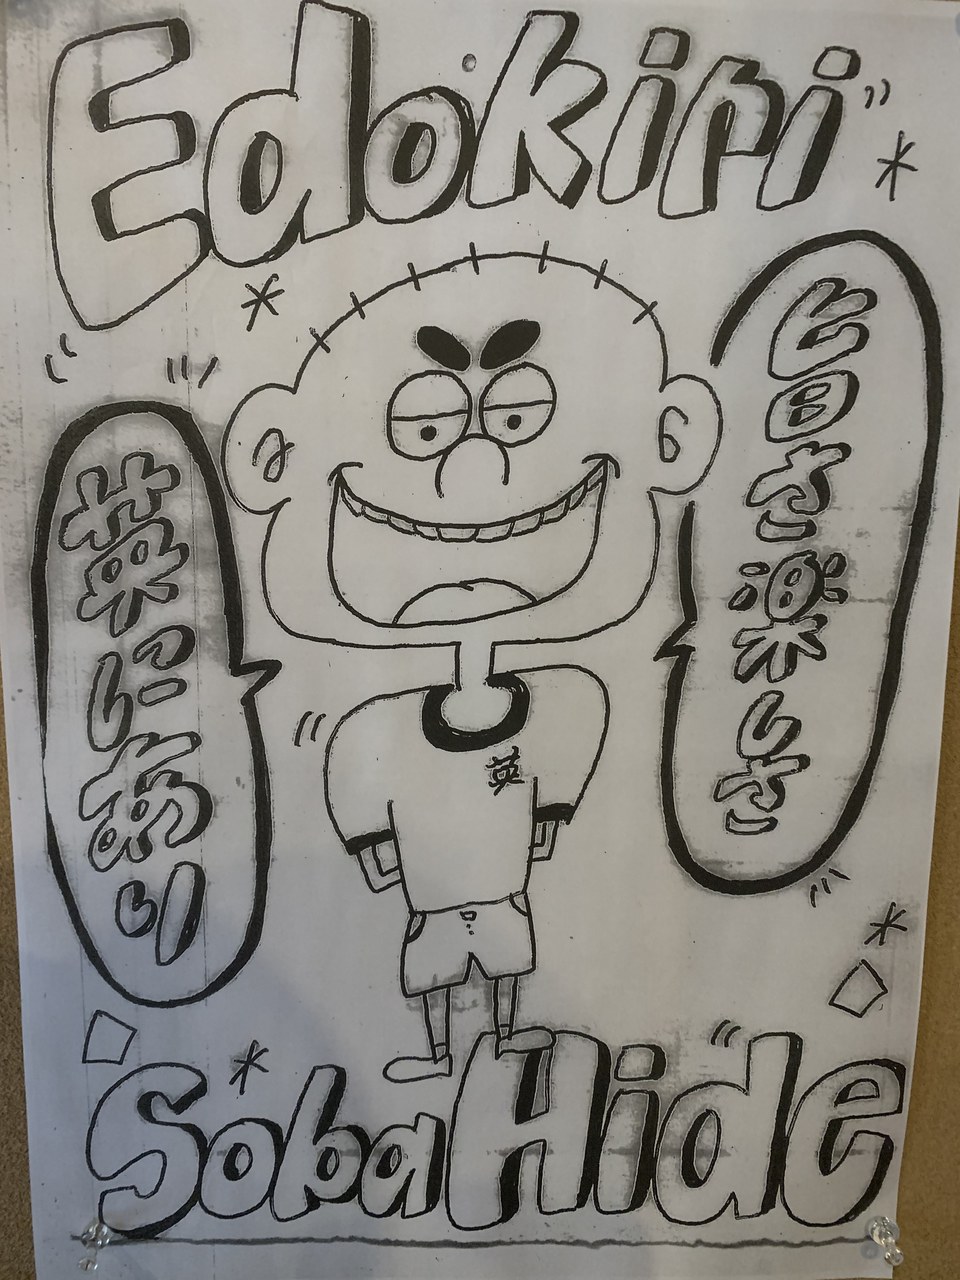 Edokiri
旨さ楽しさ
英にあり
英
Soba Hide